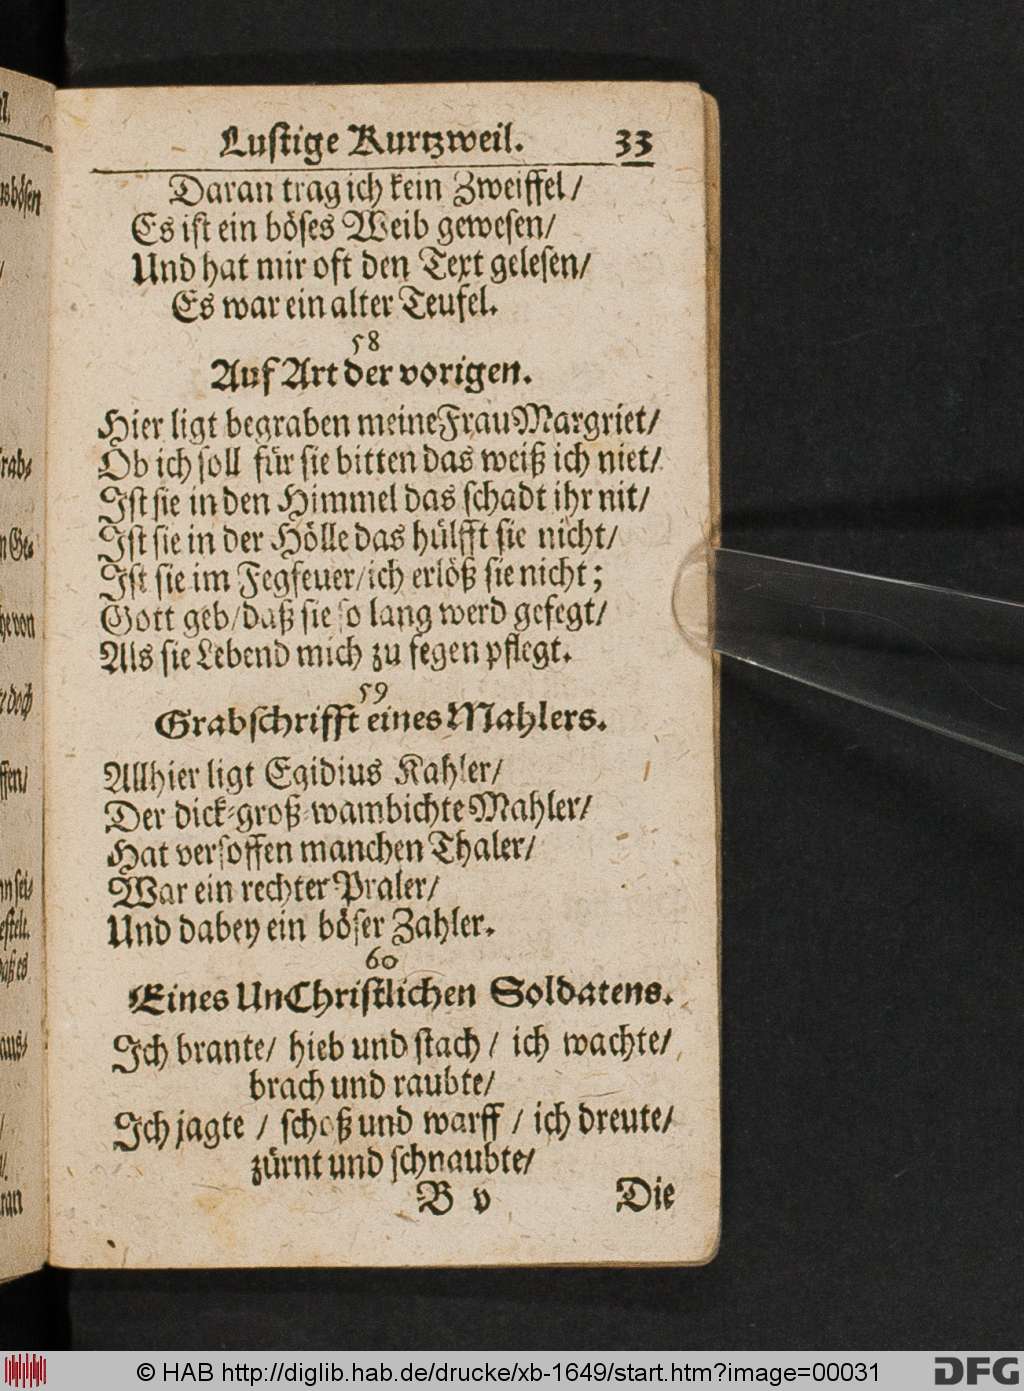 Lustige Kurtzweil. 33
Daran trag ich kein Zweiffel/
Es ist ein böses Weib gewesen/
Und hat mir oft den Text gelesen/
Es war ein alter Teufel.
58
Auf Art der vorigen.
Hier ligt begraben meine Frau Margriet/
Ob ich soll für sie bitten das weiß ich niet/
Ist sie in den Himmel das schadt ihr nit/
Ist sie in der Hölle das hülfft sie nicht/
Ist sie im Fegfeuer/ich erlöß sie nicht;
Gott geb/daß sie so lang werd gefegt/
Als sie Lebend mich zu fegen pflegt.
59
Grabschrifft eines Mahlers.
Allhier ligt Egidius Kahler/
Der dick-groß-wambichte Mahler/
Hat versoffen manchen Thaler/
War ein rechter Praler/
Und dabey ein böser Zahler.
60
Eines UnChristlichen Soldatens.
Ich brante/ hieb und stach / ich wachte/
brach und raubte/
Ich jagte / schoß und warff / ich dreute/
zürnt und schnaubte/
B v Die
© HAB http://diglib.hab.de/drucke/xb-1649/start.htm?image=00031
DFG